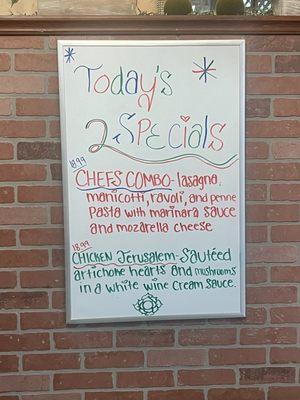 Today's
2 Specials
18.99
CHEFS COMBO- lasagna,
manicotti, ravioli, and penne
Pasta with marinara sauce
and mozarella cheese
18.99
CHICKEN Jerusalem- Sautéed
artichone hearts and mushrooms
in a white wine cream sauce.